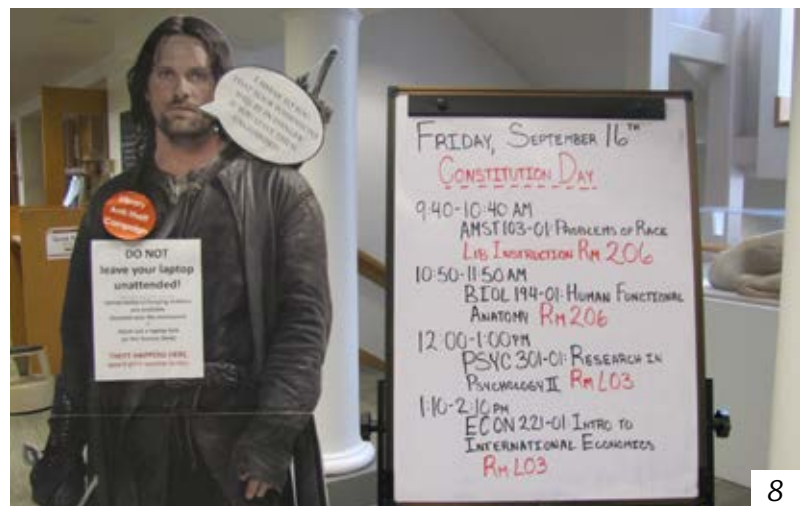 Library
Anti Theft
Campaign
DO NOT
leave your laptop
unattended!
THEFT HAPPENS HERE,
FRIDAY, SEPTEMBER 16TH
CONSTITUTION DAY
9:40-10:40 AM
AMST103-01: PROBLEMS OF RACE
LIB INSTRUCTION RM 206
10:50-11:50 AM
BIOL 194-01: HUMAN FUNCTIONAL
ANATOMY RM 206
12:00-1:00PM
PSYC 301-01: RESEARCH IN
PSYCHOLOGY II RM L03
1:10-2:10 PM
ECON 221-01: INTRO TO
INTERNATIONAL ECONOMICS
RM L03
8